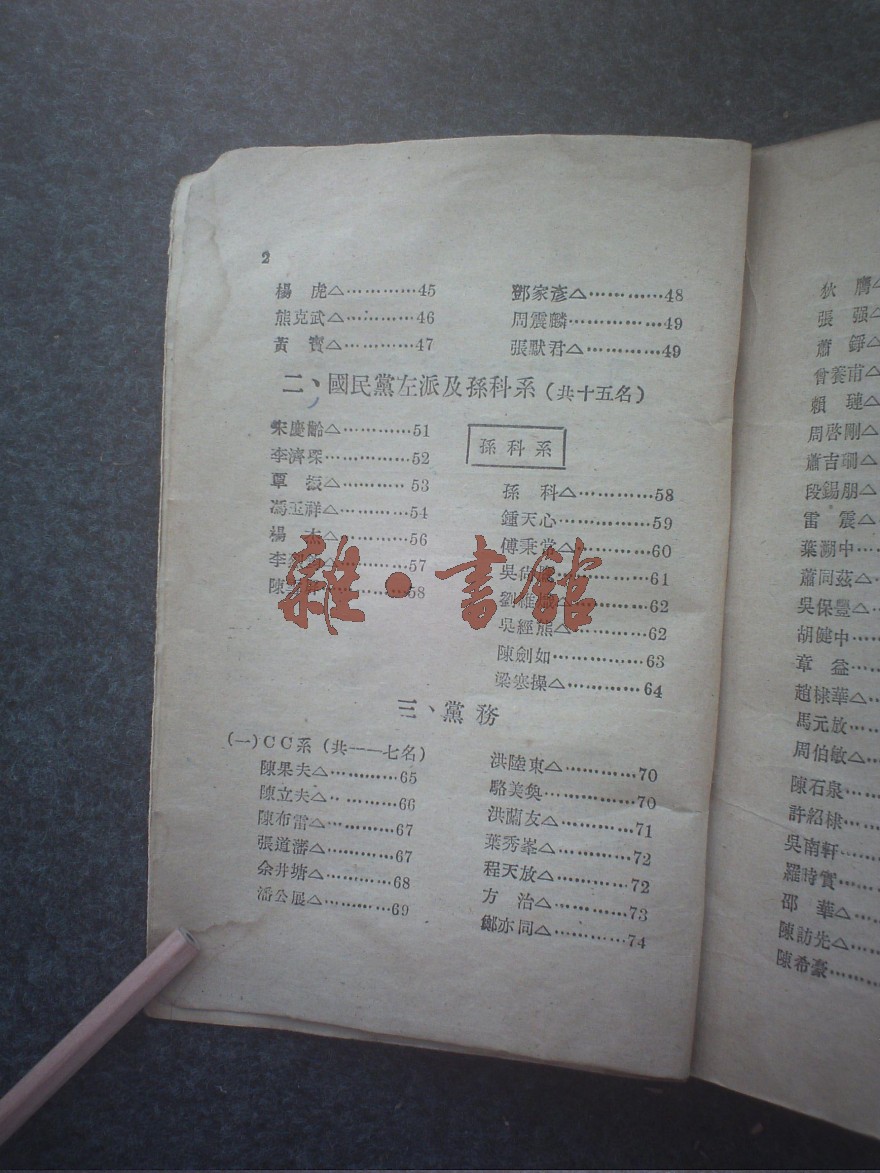 2
楊　虎△…………45
熊克武△…………46
黃　寶△…………47
鄧家彥△…………48
周震麟……………49
張默君△…………49
二、國民黨左派及孫科系（共十五名）
宋慶齡△…………51
李濟琛……………52
覃　振△…………53
馮玉祥△…………54
楊　杰△…………56
李　　　…………57
陳　　　…………58
孫科系
孫　科△…………58
鍾天心……………59
傅秉常△…………60
吳尚　　…………61
劉維熾△…………62
吳經熊△…………62
陳劍如……………63
梁寒操△…………64
三、黨務
（一）CC系（共一一七名）
陳果夫△…………65
陳立夫△…………66
陳布雷△…………67
張道藩△…………67
余井塘△…………68
潘公展△…………69
洪陸東△…………70
駱美奐……………70
洪蘭友△…………71
葉秀峯△…………72
程天放△…………72
方　治△…………73
鄭亦同△…………74
狄　膺△
張　强△
蕭　錚△
曾養甫△
賴　璉△
周啓剛△
蕭吉珊△
段錫朋△
雷　震△
葉溯中…
蕭同茲△
吳保豐△…
胡健中…
章　益…
趙棣華△…
馬元放…
周伯敏△…
陳石泉…
許紹棣…
吳南軒…
羅時實…
邵　華△…
陳訪先△…
陳希豪……
雜·書館